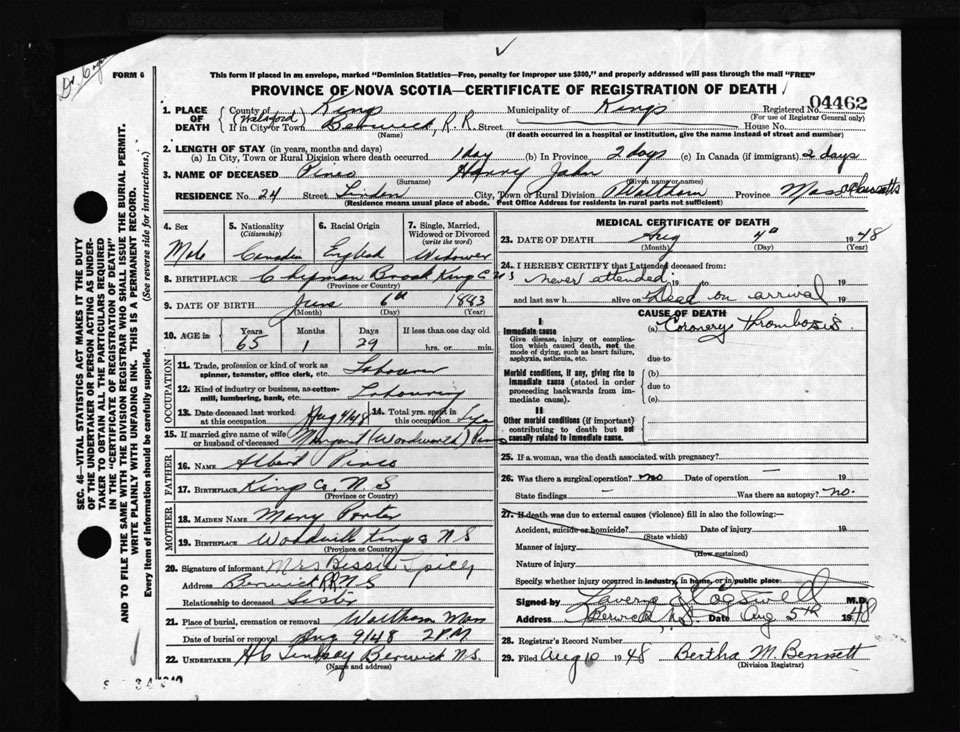 FORM 6
This form if placed in an envelope, marked "Dominion Statistics—Free, penalty for improper use $300," and properly addressed will pass through the mail "FREE"
PROVINCE OF NOVA SCOTIA—CERTIFICATE OF REGISTRATION OF DEATH
1. PLACE OF DEATH County of Kings Municipality of Kings Registered No. 04462
(For use of Registrar General only)
If in City or Town Berwick, R.R. Street House No.
(Name) (If death occurred in a hospital or institution, give the name instead of street and number)
2. LENGTH OF STAY (in years, months and days)
(a) In City, Town or Rural Division where death occurred 1 day (b) In Province 2 days (c) In Canada (if immigrant) 2 days
3. NAME OF DECEASED Pineo Harry John
(Surname) (Given name or names)
RESIDENCE No. 24 Street Linden City, Town or Rural Division Waltham Province Massachusetts
(Residence means usual place of abode. Post Office Address for residents in rural parts not sufficient)
4. Sex 5. Nationality (Citizenship) 6. Racial Origin 7. Single, Married, Widowed or Divorced (write the word)
Male Canadian English Widower
8. BIRTHPLACE Chipman Brook Kings Co. N S
(Province or Country)
9. DATE OF BIRTH June 6th 1883
(Month) (Day) (Year)
10. AGE in Years Months Days If less than one day old
65 1 29 hrs. or min.
OCCUPATION
11. Trade, profession or kind of work as spinner, teamster, office clerk, etc. Labourer
12. Kind of industry or business, as cotton-mill, lumbering, bank, etc. Labouring
13. Date deceased last worked at this occupation Aug 4/48 14. Total yrs. spent in this occupation
15. If married give name of wife or husband of deceased Margaret (Woodworth) Pineo
FATHER
16. NAME Albert Pineo
17. BIRTHPLACE Kings Co. N.S
(Province or Country)
MOTHER
18. MAIDEN NAME Mary Porter
19. BIRTHPLACE Woodville Kings N S
(Province or Country)
20. Signature of informant Mrs Bessie Spicer
Address Berwick RR N S
Relationship to deceased Sister
21. Place of burial, cremation or removal Waltham Mass
Date of burial or removal Aug 9/48 2 PM
22. UNDERTAKER H C Lindsay Berwick N.S.
(Name and address)
MEDICAL CERTIFICATE OF DEATH
23. DATE OF DEATH Aug 4th 1948
(Month) (Day)
24. I HEREBY CERTIFY that I attended deceased from:
never attended 19 to 19
and last saw h alive on Dead on arrival 19
CAUSE OF DEATH
I
Immediate cause (a) Coronery thrombosis.
Give disease, injury or complication which caused death, not the mode of dying, such as heart failure, asphyxia, asthenia, etc. due to
Morbid conditions, if any, giving rise to immediate cause (stated in order proceeding backwards from immediate cause). (b) due to (c)
II
Other morbid conditions (if important) contributing to death but not causally related to immediate cause.
25. If a woman, was the death associated with pregnancy?
26. Was there a surgical operation? no Date of operation — 19
State findings — Was there an autopsy? no.
27. If death was due to external causes (violence) fill in also the following:—
Accident, suicide or homicide? Date of injury 19
(State which)
Manner of injury
(How sustained)
Nature of injury
Specify whether injury occurred in industry, in home, or in public place:
Signed by Laverne Cogswell M.D.
Address Berwick N.S. Date Aug 5th 1948
28. Registrar's Record Number
29. Filed Aug 10 1948 Bertha M. Bennett
(Division Registrar)
SEC. 46—VITAL STATISTICS ACT MAKES IT THE DUTY
OF THE UNDERTAKER OR PERSON ACTING AS UNDER-
TAKER TO OBTAIN ALL THE PARTICULARS REQUIRED
IN THE "CERTIFICATE OF REGISTRATION OF DEATH"
AND TO FILE THE SAME WITH THE DIVISION REGISTRAR WHO SHALL ISSUE THE BURIAL PERMIT.
WRITE PLAINLY WITH UNFADING INK. THIS IS A PERMANENT RECORD.
Every item of information should be carefully supplied. (See reverse side for instructions.)